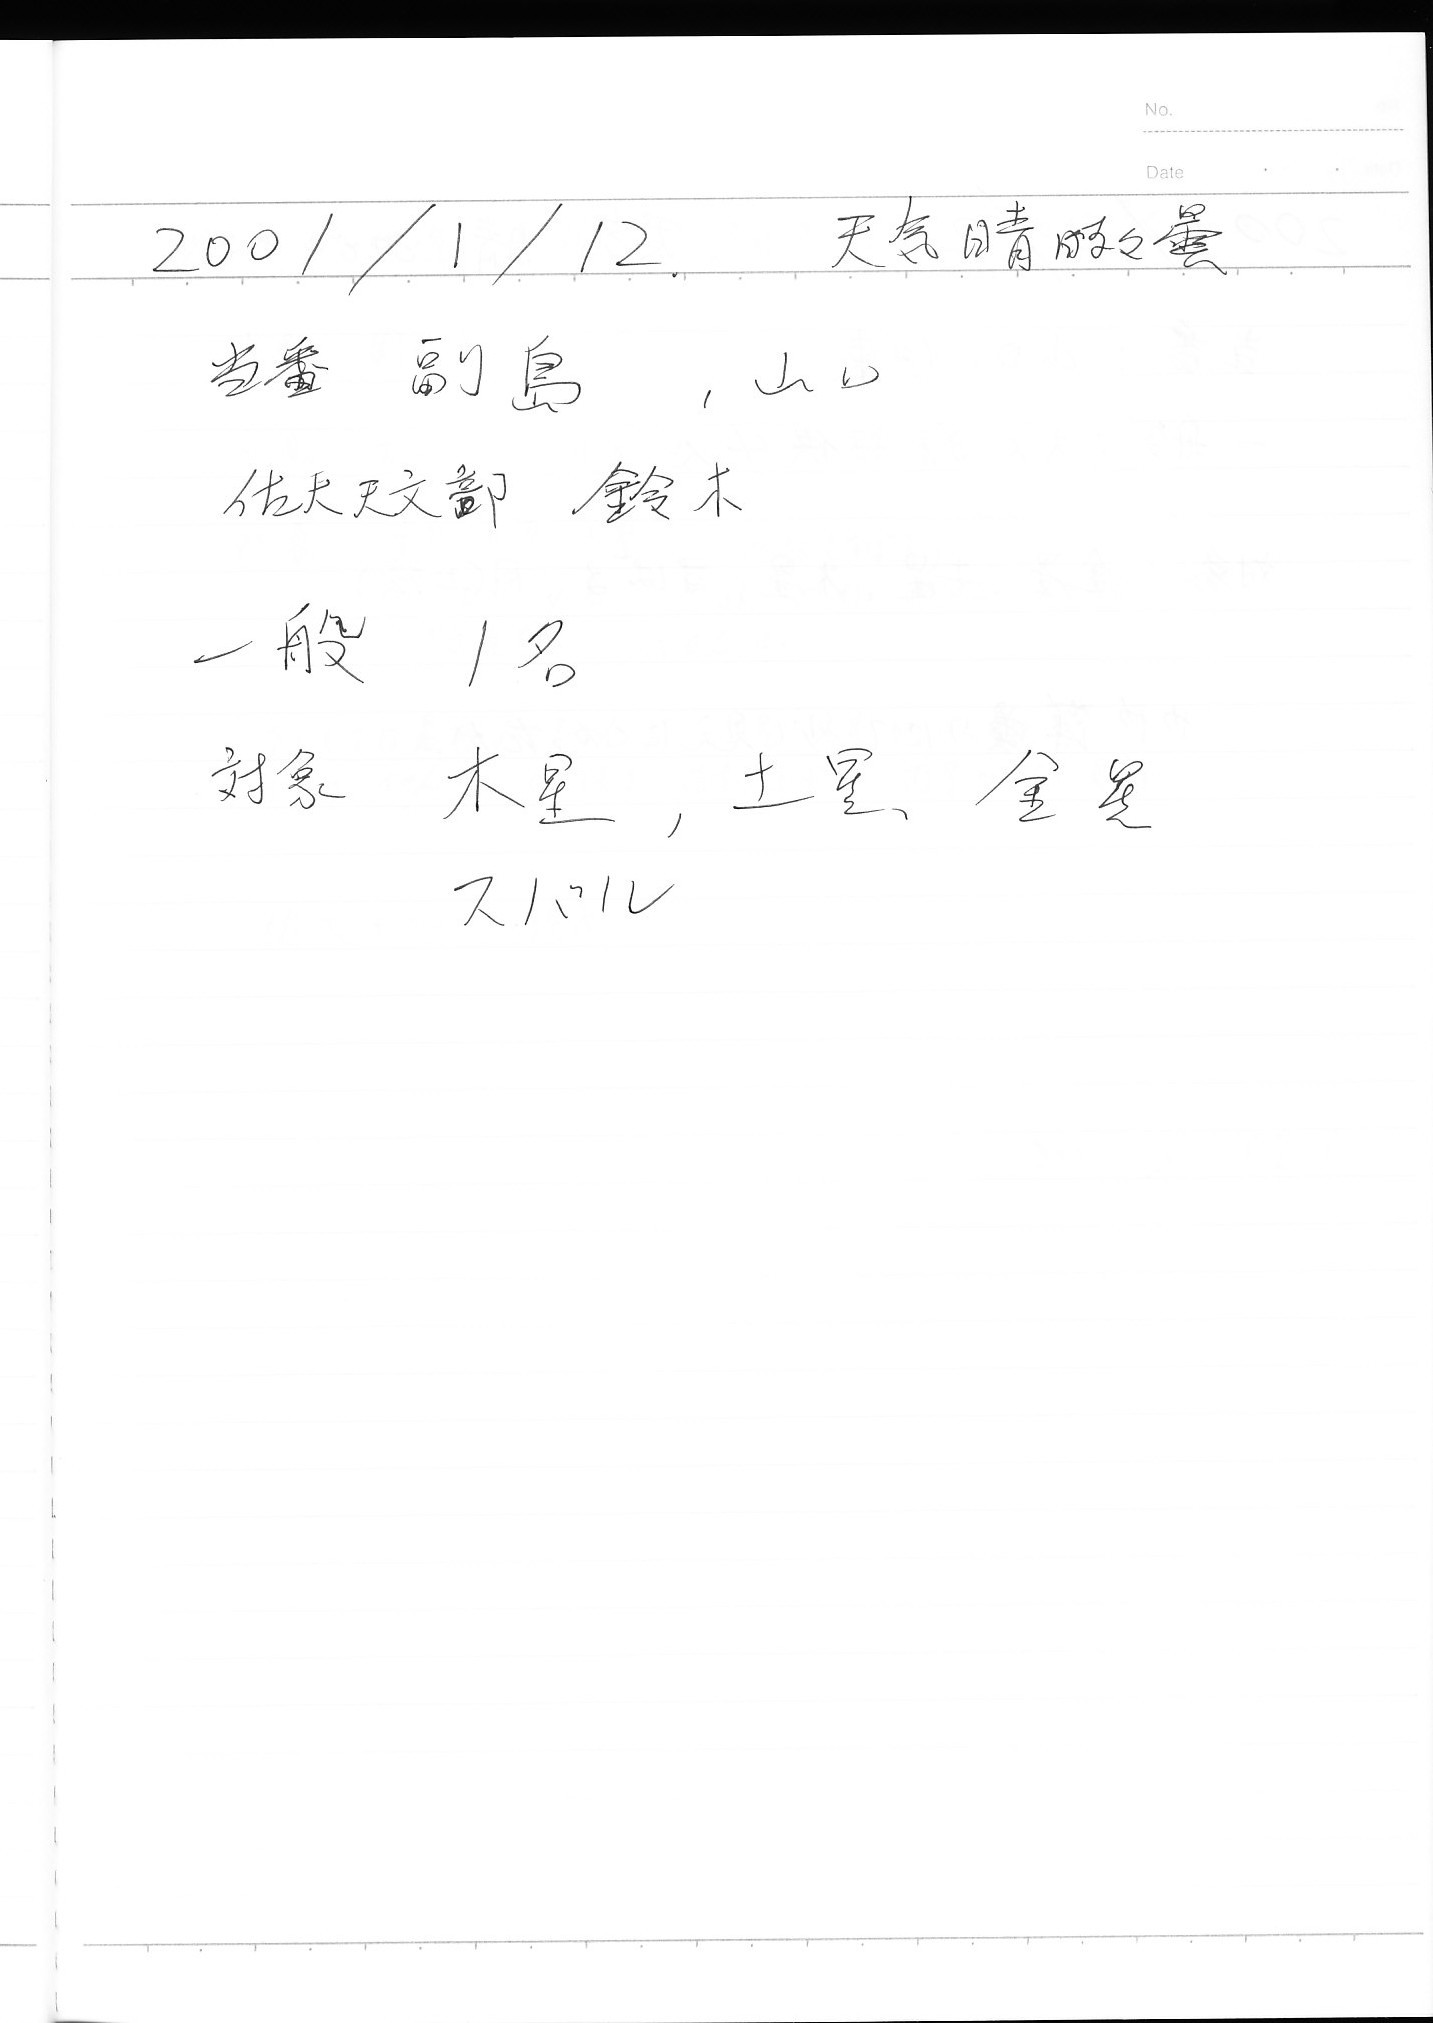 No.
Date
2001/1/12. 天気晴時々曇
当番 副島 , 山口
佐大天文部 鈴木
一般 1名
対象 木星, 土星、金星
スバル